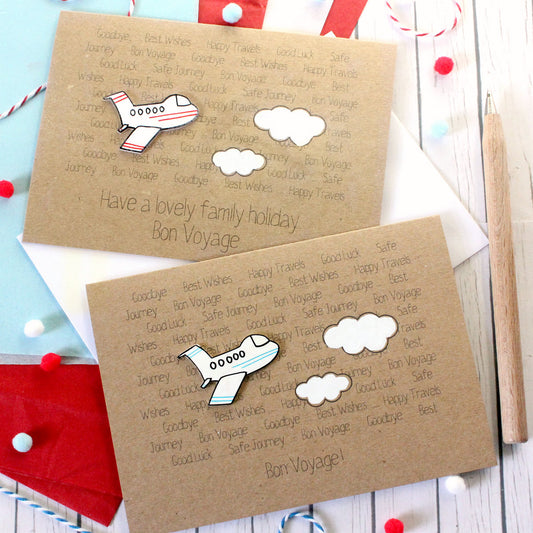 Goodbye Best Wishes Happy Travels Good Luck Safe
Journey Bon Voyage Goodbye Best Wishes Happy Travels
Good Luck Safe Journey Bon Voyage Goodbye Best
Wishes Happy Travels Good Luck Safe Journey
Goodbye Best
Journey Bon Voyage
Wishes Good Luck
Goodbye Best Happy
Journey Bon Voyage Goodbye Best Wishes Happy Travels
Have a lovely family holiday
Bon Voyage
Goodbye Best Wishes Happy Travels Good Luck Safe
Journey Bon Voyage Goodbye Best Wishes Happy Travels
Good Luck Safe Journey Bon Voyage Goodbye Best
Wishes Happy Travels Good Luck Safe
Goodbye Best
Journey Bon Voyage
Good Luck
Wishes Happy
Goodbye Best Wishes Happy Travels Good Luck Safe
Journey Bon Voyage Goodbye Best
Good Luck Safe Journey Bon Voyage
Bon Voyage!